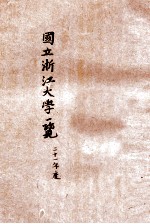 國立浙江大學一覽
二十一年度